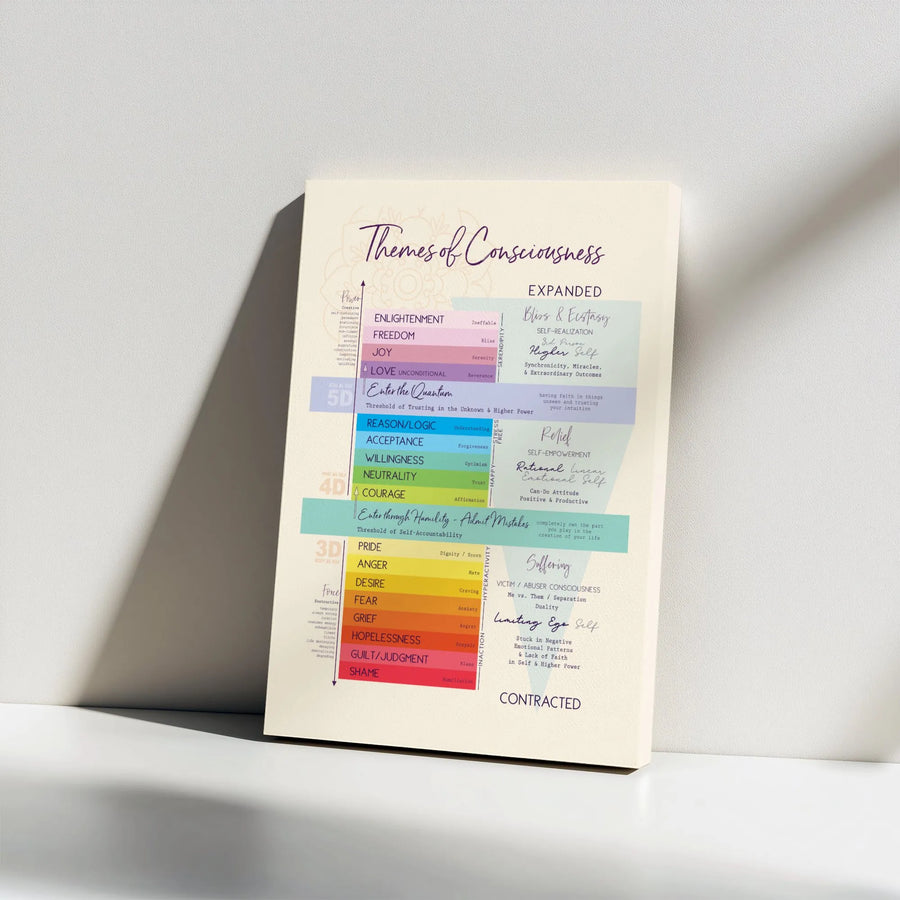 Themes of Consciousness
EXPANDED
Power
Creative
ENLIGHTENMENT Ineffable
FREEDOM Bliss
JOY Serenity
LOVE UNCONDITIONAL Reverence
SERENDIPITY
Bliss & Ecstasy
SELF-REALIZATION
3rd Person
Higher Self
Synchronicity, Miracles,
& Extraordinary Outcomes
5D
Enter the Quantum
Threshold of Trusting in the Unknown & Higher Power
having faith in things
unseen and trusting
your intuition
REASON/LOGIC Understanding
ACCEPTANCE Forgiveness
WILLINGNESS Optimism
NEUTRALITY Trust
COURAGE Affirmation
STRESS
FREE
HAPPY
Relief
SELF-EMPOWERMENT
Rational Linear
Emotional Self
Can-Do Attitude
Positive & Productive
4D
Enter through Humility - Admit Mistakes
Threshold of Self-Accountability
completely own the part
you play in the
creation of your life
3D
PRIDE Dignity / Scorn
ANGER Hate
DESIRE Craving
FEAR Anxiety
GRIEF Regret
HOPELESSNESS Despair
GUILT/JUDGMENT Blame
SHAME Humiliation
HYPERACTIVITY
INACTION
Force
Destructive
Suffering
VICTIM / ABUSER CONSCIOUSNESS
Me vs. Them / Separation
Duality
Limiting Ego Self
Stuck in Negative
Emotional Patterns
& Lack of Faith
in Self & Higher Power
CONTRACTED